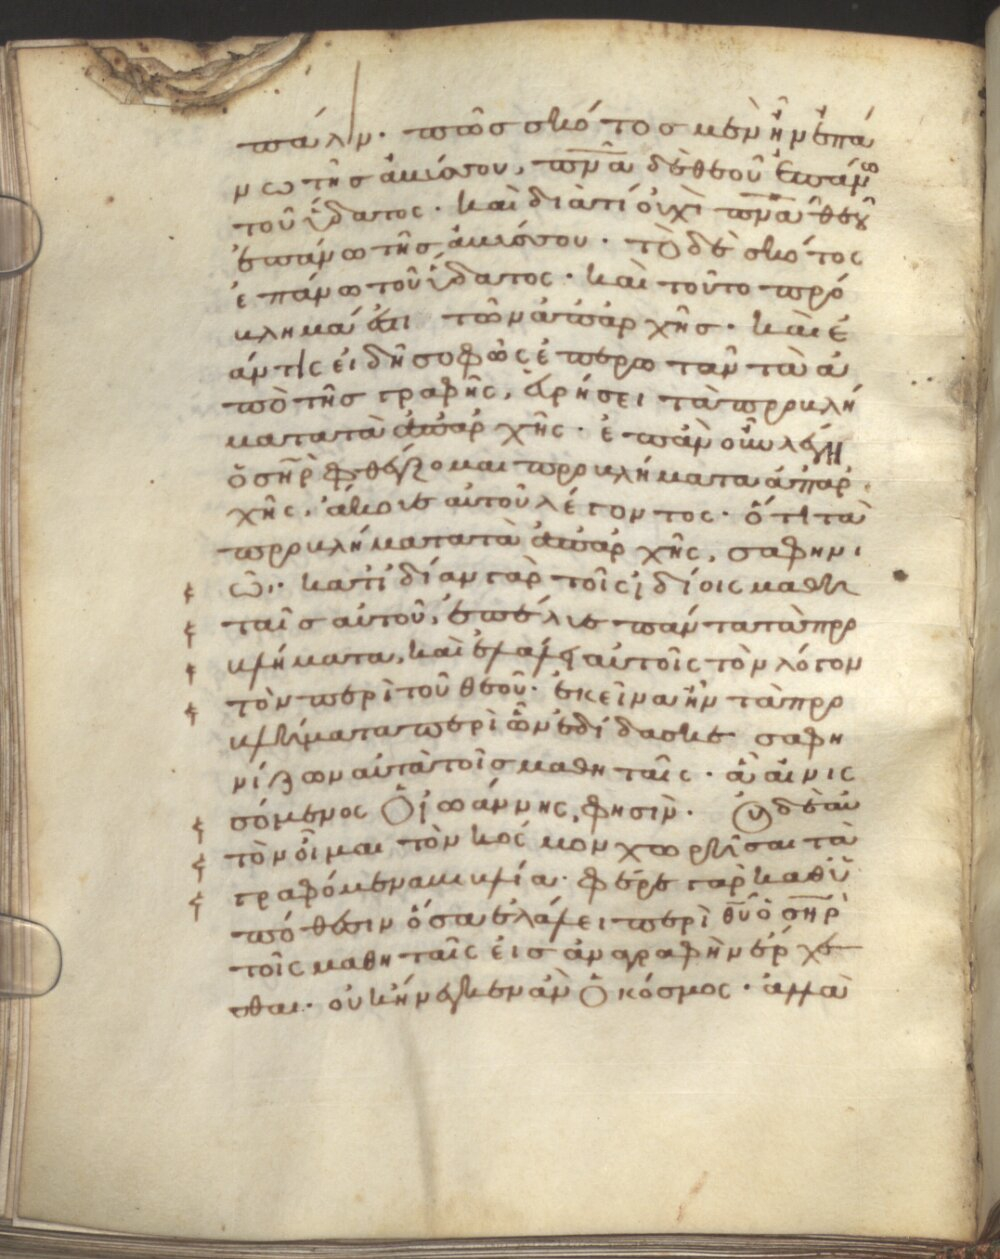 πάλιν· πῶς σκότος μὲν ἦν ἐπά
νω τῆς ἀβύσσου, π̅ν̅α̅ δὲ θεοῦ ἐπάνω
τοῦ ὕδατος· καὶ διατί οὐχὶ π̅ν̅α̅ θεοῦ
ἐπάνω τῆς ἀβύσσου· τὸ δὲ σκότος
ἐπάνω τοῦ ὕδατος· καὶ τοῦτο πρό
βλημά ἐστι τῶν ἀπαρχῆς· καὶ ἐ
άν τις εἰδῇ σοφῶς ἐπερωτᾶν τὰ ἀ
πὸ τῆς γραφῆς, εὑρήσει τὰ προβλή
ματα τὰ ἀπαρχῆς· ἐπὰν οὖν λέγῃ
ὁ σ̅η̅ρ̅ φθέγξομαι προβλήματα ἀπαρ
χῆς, ἄκουε αὐτοῦ λέγοντος· ὅτι τὰ
προβλήματα τὰ ἀπαρχῆς, σαφηνι
ῶ· κατιδίαν γὰρ τοῖς ἰδίοις μαθη
ταῖς αὐτοῦ, ἐπέλυε πάντα τὰ προ
βλήματα, καὶ ἐλάλει αὐτοῖς τὸν λόγον
τὸν περὶ τοῦ θεοῦ· ἐκεῖνα ἦν τὰ προ
βλήματα περὶ ὧν ἐδίδασκε σαφη
νίζων αὐτὰ τοῖς μαθηταῖς· ἃ αἰνισ
σόμενος ὁ ἰωάννης, φησὶν· οὐδὲ αὐ
τὸν οἶμαι τὸν κόσμον χωρῆσαι τὰ
γραφόμενα βιβλία· φέρε γὰρ καθ ὑ
πόθεσιν ὅσα ἐλάλει περὶ θ̅υ̅ ὁ σ̅η̅ρ̅
τοῖς μαθηταῖς εἰς ἀναγραφὴν ἔρχε
σθαι· οὐκ ἤνεγκεν ἂν ὁ κόσμος· ἀλλὰ